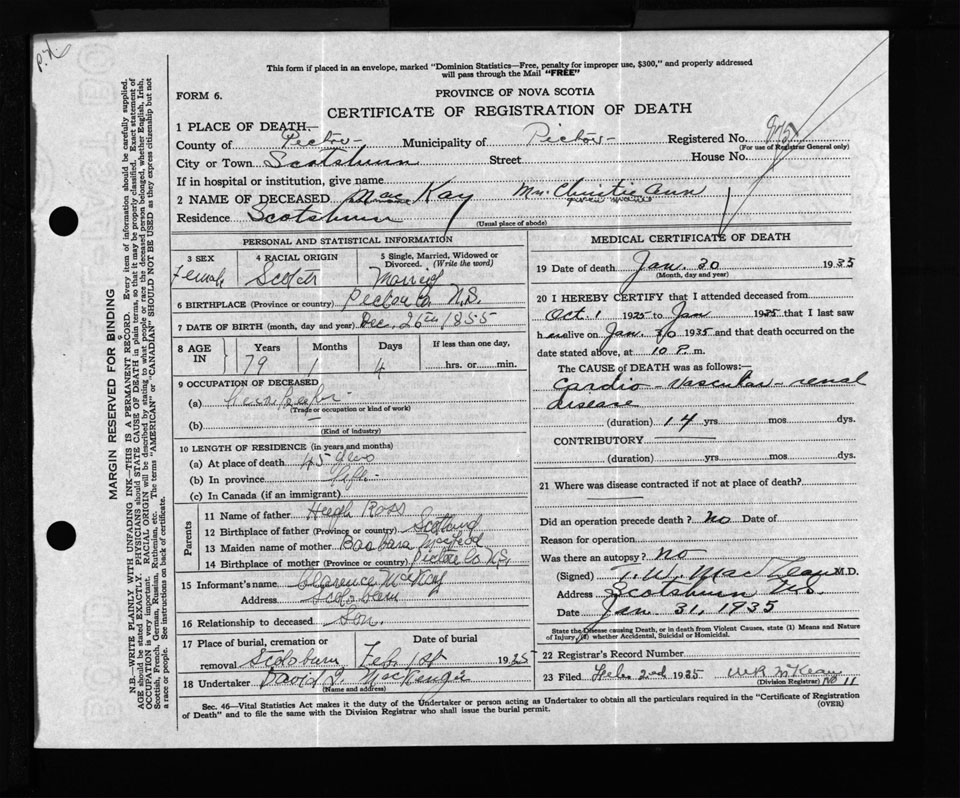 P.N.
This form if placed in an envelope, marked "Dominion Statistics—Free, penalty for improper use, $300," and properly addressed
will pass through the Mail "FREE"
FORM 6.
PROVINCE OF NOVA SCOTIA
CERTIFICATE OF REGISTRATION OF DEATH
1 PLACE OF DEATH,—
County of Pictou Municipality of Pictou Registered No.
(For use of Registrar General only)
City or Town Scotsburn Street House No.
If in hospital or institution, give name
2 NAME OF DECEASED MacKay Mrs. Christie Ann
Residence Scotsburn
(Usual place of abode)
PERSONAL AND STATISTICAL INFORMATION
3 SEX Female
4 RACIAL ORIGIN Scotch
5 Single, Married, Widowed or Divorced. (Write the word) Married
6 BIRTHPLACE (Province or country) Pictou Co. N.S.
7 DATE OF BIRTH (month, day, and year) Dec. 26th 1855
8 AGE IN Years 79 Months 1 Days 4 If less than one day, hrs. or min.
9 OCCUPATION OF DECEASED
(a) Housekeeper
(Trade or occupation or kind of work)
(b)
(Kind of industry)
10 LENGTH OF RESIDENCE (in years and months)
(a) At place of death 45
(b) In province Life
(c) In Canada (if an immigrant)
Parents
11 Name of father Hugh Ross
12 Birthplace of father (Province or country) Scotland
13 Maiden name of mother Barbara McLeod
14 Birthplace of mother (Province or country) Pictou Co. N.S.
15 Informant's name Clarence McKay
Address Scotsburn
16 Relationship to deceased Son.
17 Place of burial, cremation or removal Scotsburn Date of burial Feb. 1st 1935
18 Undertaker David L. MacKenzie
(Name and address)
MEDICAL CERTIFICATE OF DEATH
19 Date of death Jan. 30 1935
(Month, day and year)
20 I HEREBY CERTIFY that I attended deceased from
Oct. 1 1925 to Jan 1935 that I last saw
h alive on Jan. 30 1935 and that death occurred on the
date stated above, at 10 P. m.
The CAUSE of DEATH was as follows:
Cardio-vascular-renal
disease
(duration) 14 yrs mos dys.
CONTRIBUTORY
(duration) yrs mos dys.
21 Where was disease contracted if not at place of death?
Did an operation precede death? No Date of
Reason for operation
Was there an autopsy? No
(Signed) T. W. MacLean M.D.
Address Scotsburn N.S.
Date Jan. 31, 1935
State the Disease causing Death, or in death from Violent Causes, state (1) Means and Nature
of Injury, (2) whether Accidental, Suicidal or Homicidal.
22 Registrar's Record Number
23 Filed Feb. 2nd 1935
(Division Registrar) No 11
Sec. 46—Vital Statistics Act makes it the duty of the Undertaker or person acting as Undertaker to obtain all the particulars required in the "Certificate of Registration
of Death" and to file the same with the Division Registrar who shall issue the burial permit.
(OVER)
MARGIN RESERVED FOR BINDING
N.B.—WRITE PLAINLY WITH UNFADING INK—THIS IS A PERMANENT RECORD. Every item of information should be carefully supplied.
AGE should be stated EXACTLY. PHYSICIANS should STATE CAUSE OF DEATH in plain terms, so that it may be properly classified. Exact statement of
OCCUPATION is very important. RACIAL ORIGIN will be described by stating to what people or race the deceased person belonged, whether English, Irish,
Scottish, French, German, Russian, Ruthenian, etc. The terms "AMERICAN" or "CANADIAN" SHOULD NOT BE USED as they express citizenship but not
a race or people. See instructions on back of certificate.